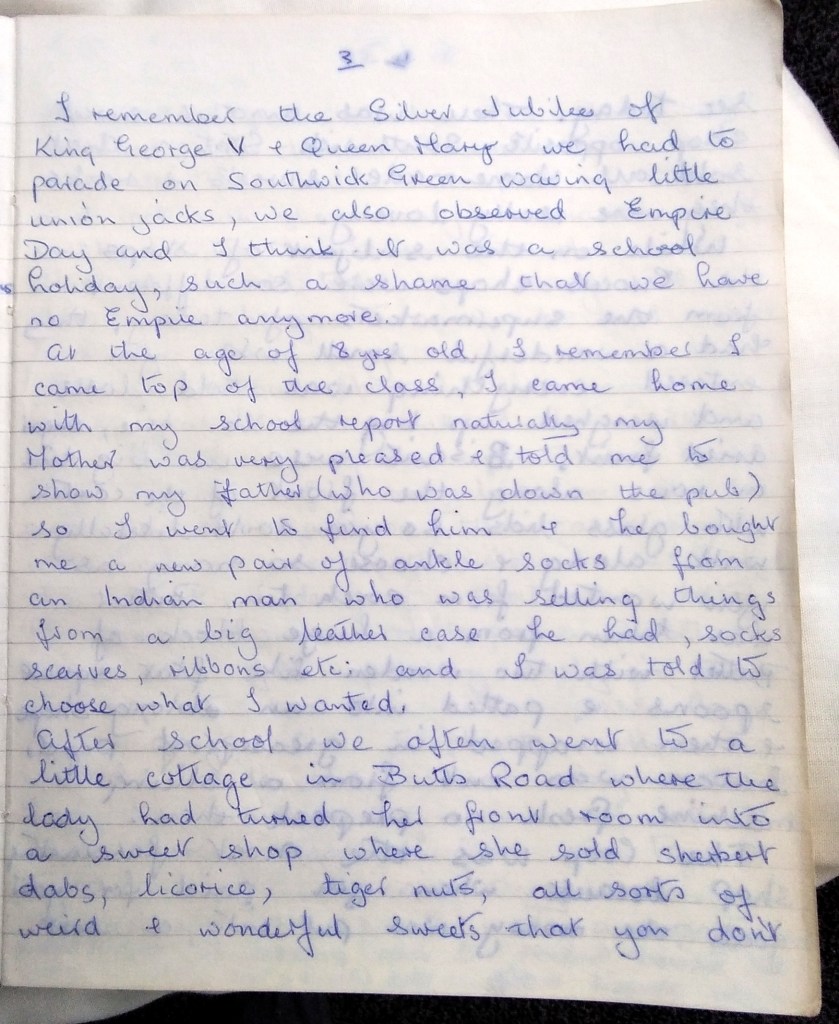 3
I remember the Silver Jubilee of
King George V & Queen Mary we had to
parade on Southwick Green waving little
union jacks, we also observed Empire
Day and I think it was a school
holiday, such a shame that we have
no Empire anymore.
At the age of 8 yrs old I remember I
came top of the class, I came home
with my school report naturally my
Mother was very pleased & told me to
show my father (who was down the pub)
so I went to find him & he bought
me a new pair of ankle socks from
an Indian man who was selling things
from a big leather case he had, socks
scarves, ribbons etc: and I was told to
choose what I wanted.
After school we often went to a
little cottage in Butts Road where the
lady had turned her front room into
a sweet shop where she sold sherbert
dabs, licorice, tiger nuts, all sorts of
weird & wonderful sweets that you don't